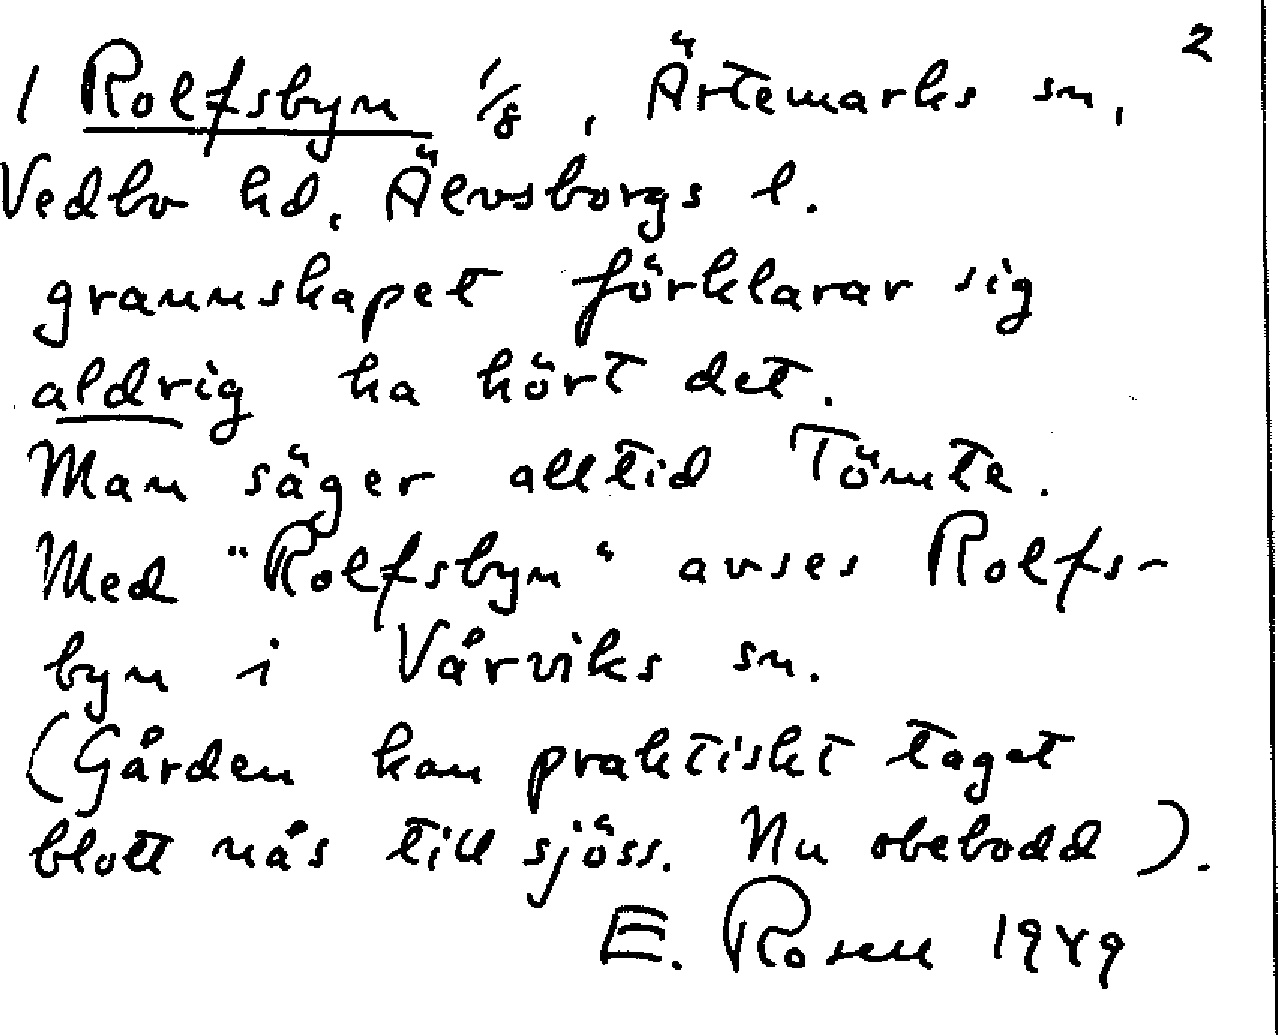 2
1 Rolfsbyn 1/8, Ärtemarks sn,
Vedbo hd, Älvsborgs l.
grannskapet förklarar sig
aldrig ha hört det.
Man säger alltid Tömte.
Med "Rolfsbyn" avses Rolfs-
byn i Vårviks sn.
(Gården kan praktiskt taget
blott nås till sjöss. Nu obebodd).
E. Rosen 1949